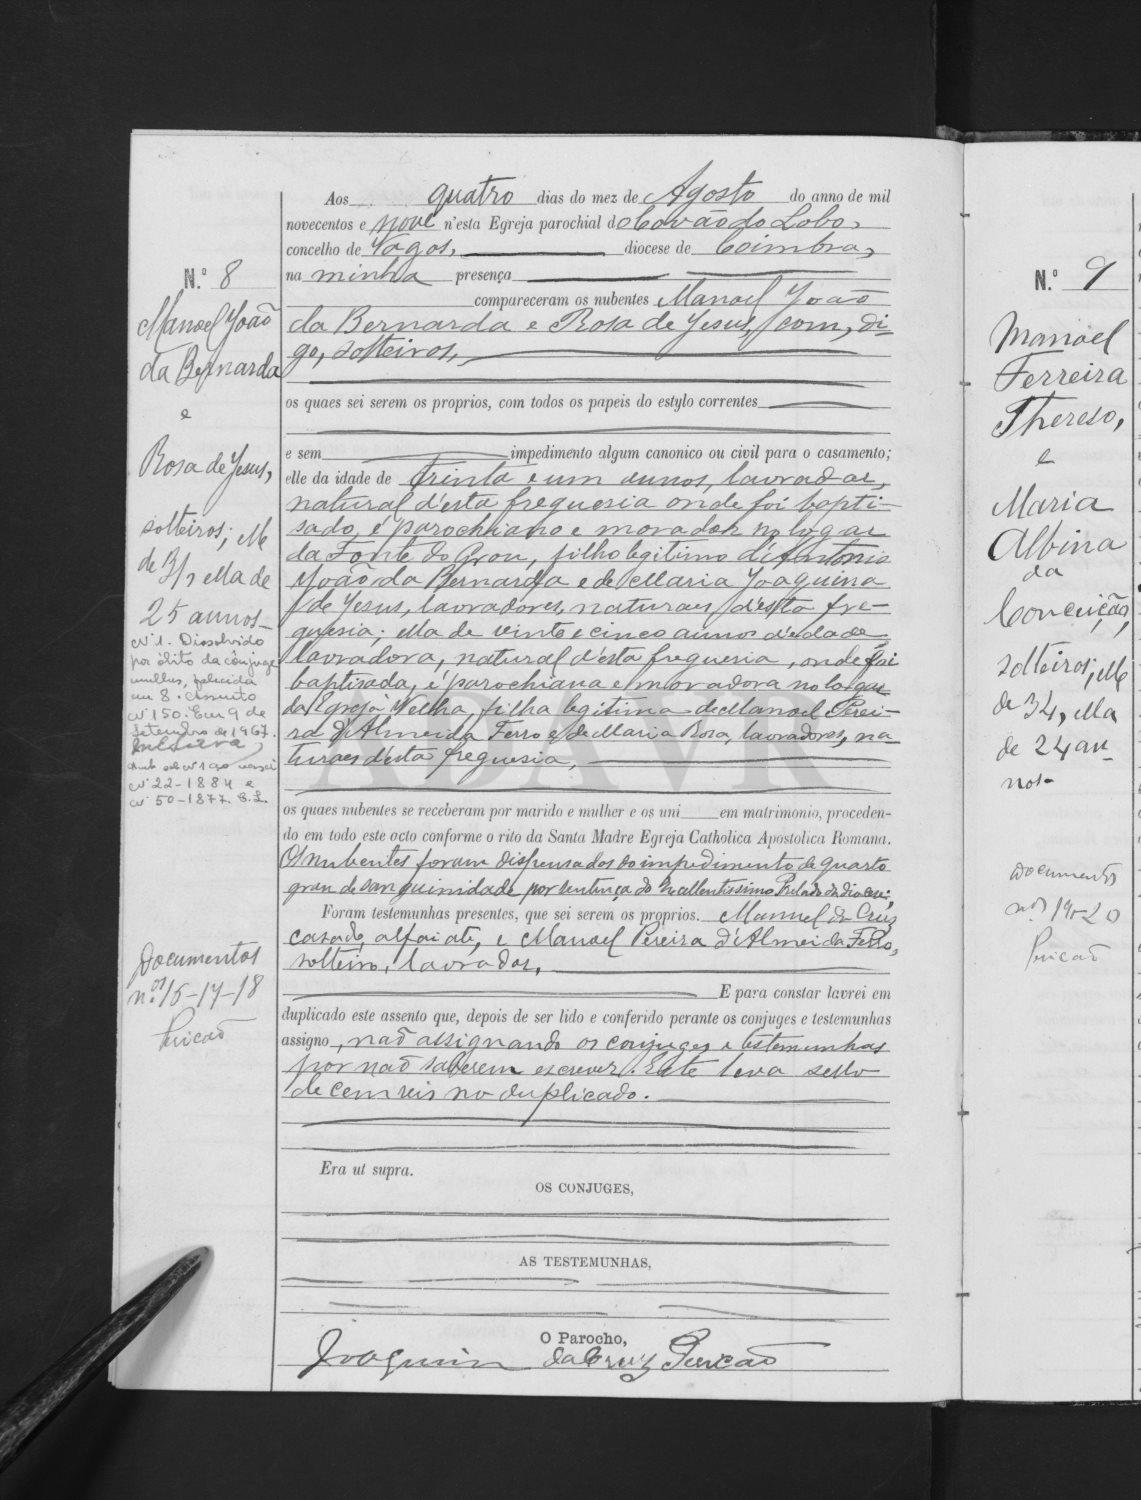 Aos quatro dias do mez de Agosto do anno de mil
novecentos e nove n'esta Egreja parochial do Covão do Lobo,
concelho de Vagos, diocese de Coimbra,
na minha presença
compareceram os nubentes Manoel João
da Bernarda e Rosa de Jesus, com, di-
go, solteiros,
os quaes sei serem os proprios, com todos os papeis do estylo correntes
e sem impedimento algum canonico ou civil para o casamento;
elle da idade de trinta e um annos, lavrador,
natural d'esta freguesia onde foi bapti-
sado, é parochiano e morador no logar
da Fonte do Grou, filho legitimo d'Antonio
João da Bernarda e de Maria Joaquina
de Jesus, lavradores, naturaes d'esta fre-
guesia; ella de vinte e cinco annos d'edade,
lavradora, natural d'esta freguesia, onde foi
baptisada, é parochiana e moradora no logar
da Egreja Velha, filha legitima de Manoel Perei-
ra d'Almeida Ferro e de Maria Rosa, lavradores, na-
turaes d'esta freguesia,
os quaes nubentes se receberam por marido e mulher e os uni em matrimonio, proceden-
do em todo este acto conforme o rito da Santa Madre Egreja Catholica Apostolica Romana.
Os nubentes foram dispensados do impedimento de quarto
grau de sanguinidade por sentença do Excellentissimo Prelado da diocese;
Foram testemunhas presentes, que sei serem os proprios. Manuel da Cruz
casado, alfaiate, e Manoel Pereira d'Almeida Ferro,
solteiro, lavrador,
E para constar lavrei em
duplicado este assento que, depois de ser lido e conferido perante os conjuges e testemunhas
assigno, não assignando os conjuges e testemunhas
por não saberem escrever. Este leva sello
de cem reis no duplicado.
Era ut supra.
OS CONJUGES,
AS TESTEMUNHAS,
O Parocho,
Joaquim da Cruz Pericão
N.º 8
Manoel João
da Bernarda
e
Rosa de Jesus,
solteiros; elle
de 31, ella de
25 annos
Nº 1. Dissolvido
por óbito da cônjuge
mulher, falecida
em 8. Assento
nº 150. Em 9 de
Setembro de 1967.
nº 22-1884 e
nº 50-1877. S.L.
Documentos
n.os 16-17-18
Pericão
N.º 9
Manoel
Ferreira
Thereso,
e
Maria
Albina
da
Conceição,
solteiros; elle
de 34, ella
de 24 an-
nos-
Documentos
nos 19-20
Pericão
ADAVR